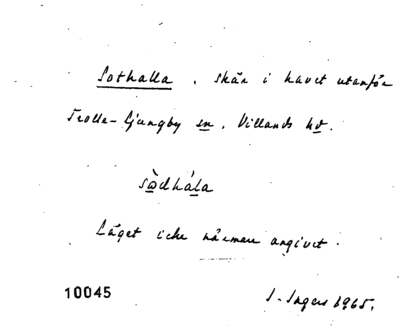 Sothalla, skär i havet utanför
Trolle-Ljungby sn, Villands hd.
sòdhála
Läget icke närmare angivet.
10045
S. Ingers 1965.